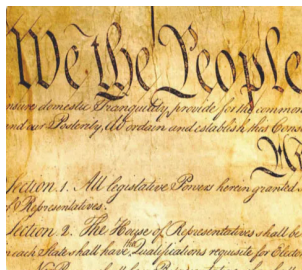 We the People
nsure domestic Tranquility, provide for the common
nd our Posterity, do ordain and establish this Cons
Section. 1. All legislative Powers herein granted s
of Representatives.
Section. 2. The House of Representatives shall be
in each State shall have the Qualifications requisite for Elect
No Person shall be a Repres